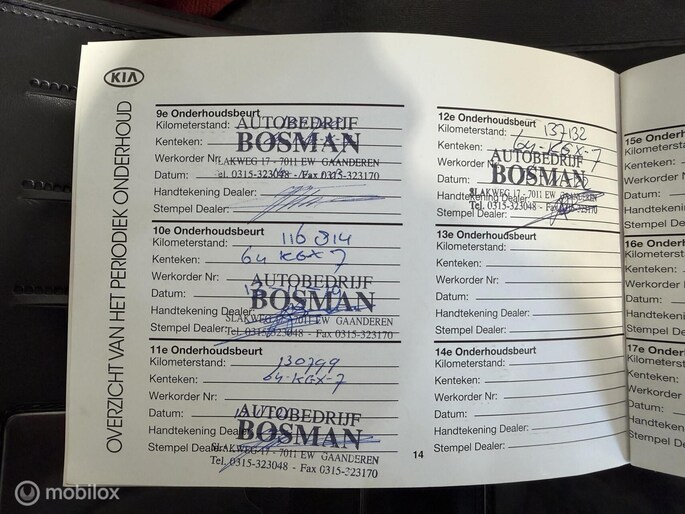 KIA
OVERZICHT VAN HET PERIODIEK ONDERHOUD
9e Onderhoudsbeurt
Kilometerstand:
Kenteken:
Werkorder Nr:
Datum:
Handtekening Dealer:
Stempel Dealer:
AUTOBEDRIJF
BOSMAN
SLAKWEG 17 - 7011 EW GAANDEREN
Tel. 0315-323048 - Fax 0315-323170
10e Onderhoudsbeurt
Kilometerstand: 116 314
Kenteken: 64 KGX 7
Werkorder Nr:
Datum:
Handtekening Dealer:
Stempel Dealer:
AUTOBEDRIJF
BOSMAN
SLAKWEG 17 - 7011 EW GAANDEREN
Tel. 0315-323048 - Fax 0315-323170
11e Onderhoudsbeurt
Kilometerstand: 130799
Kenteken: 64-KGX-7
Werkorder Nr:
Datum:
Handtekening Dealer:
Stempel Dealer:
AUTOBEDRIJF
BOSMAN
SLAKWEG 17 - 7011 EW GAANDEREN
Tel. 0315-323048 - Fax 0315-323170
12e Onderhoudsbeurt
Kilometerstand: 137132
Kenteken: 64-KGX-7
Werkorder Nr:
Datum:
Handtekening Dealer:
Stempel Dealer:
AUTOBEDRIJF
BOSMAN
SLAKWEG 17 - 7011 EW GAANDEREN
Tel. 0315-323048 - Fax 0315-323170
13e Onderhoudsbeurt
Kilometerstand:
Kenteken:
Werkorder Nr:
Datum:
Handtekening Dealer:
Stempel Dealer:
14e Onderhoudsbeurt
Kilometerstand:
Kenteken:
Werkorder Nr:
Datum:
Handtekening Dealer:
Stempel Dealer:
14
15e Onderh
Kilometerstand
Kenteken:
Werkorder
Datum:
Handtekening
Stempel Dea
16e Onderh
Kilometersta
Kenteken:
Werkorder
Datum:
Handtekening
Stempel De
17e Onder
Kilometers
Kenteken:
Werkorde
Datum:
Handteke
Stempel
mobilox